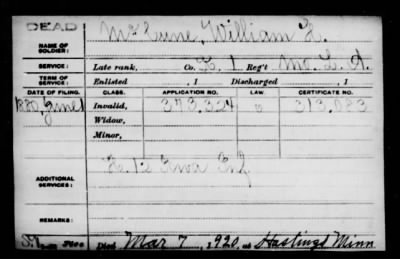 DEAD
NAME OF SOLDIER: McCune, William L.
SERVICE: Late rank, Co. K, 1 Reg't Mo. L. A.
TERM OF SERVICE: Enlisted , 1 Discharged , 1
DATE OF FILING. CLASS. APPLICATION NO. LAW. CERTIFICATE NO.
1880, June 1 Invalid, 373,324 313,083
Widow,
Minor,
ADDITIONAL SERVICES: 12 Iowa Inf
REMARKS:
Died Mar 7, 1920, at Hastings Minn